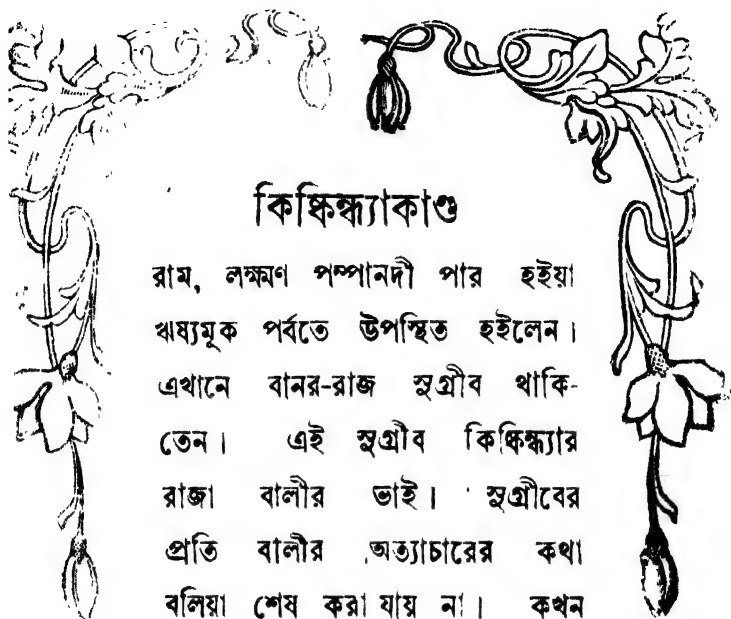 কিষ্কিন্ধ্যাকাণ্ড
রাম, লক্ষ্মণ পম্পানদী পার হইয়া
ঋষ্যমূক পর্বতে উপস্থিত হইলেন।
এখানে বানর-রাজ সুগ্রীব থাকি-
তেন। এই সুগ্রীব কিষ্কিন্ধ্যার
রাজা বালীর ভাই। সুগ্রীবের
প্রতি বালীর অত্যাচারের কথা
বলিয়া শেষ করা যায় না। কখন